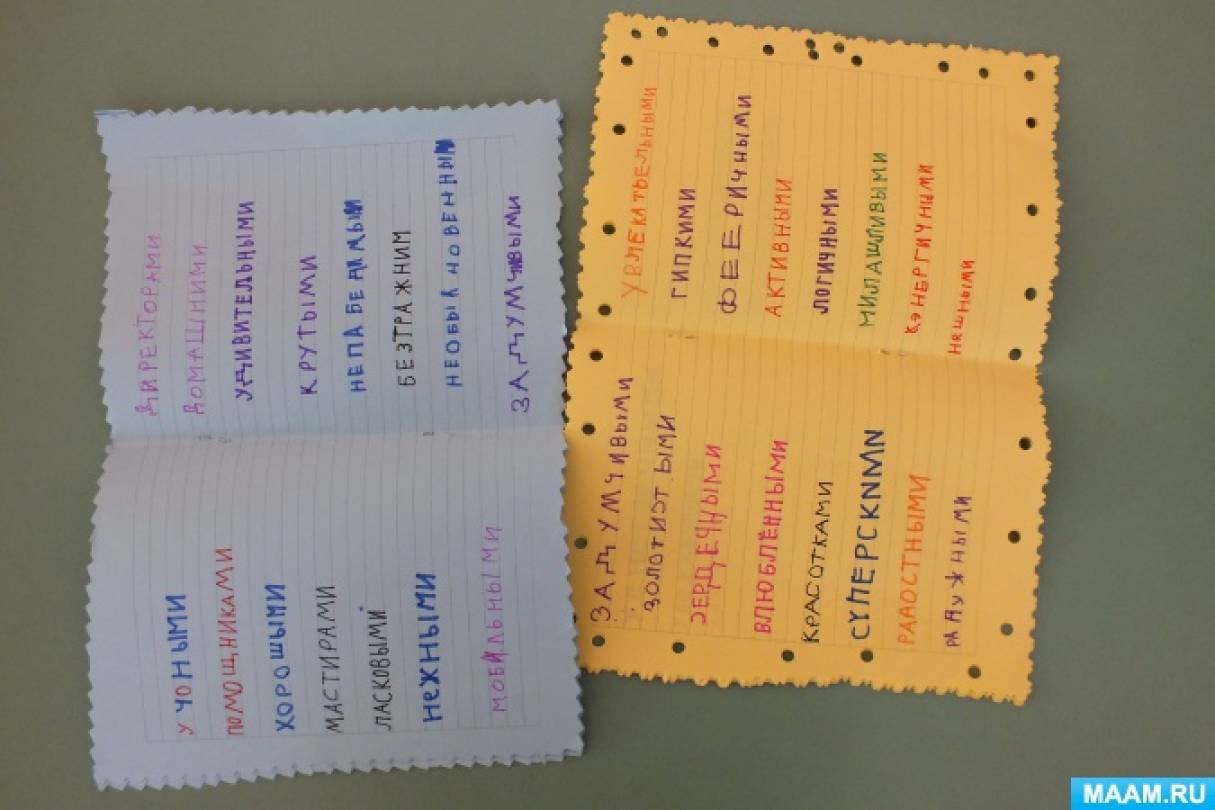 УЧОНЫМИ
ПОМОЩНИКАМИ
ХОРОШЫМИ
МАСТИРАМИ
ЛАСКОВЫМИ
НеЖНЫМИ
МОБИЛЬНЫМИ
ДИРЕКТОРАМИ
ДОМАШНИМИ
УДИВИТЕЛЬНЫМИ
КРУТЫМИ
НЕПАБЕДИМЫМИ
БЕЗТРАЖНИМ
НЕОБЫКНОВЕННЫМ
ЗАДУМЧИВЫМИ
ЗАДУМЧИВЫМИ
ЗОЛОТИСТЫМИ
СЕРДЕЧНЫМИ
ВЛЮБЛЁННЫМИ
КРАСОТКАМИ
СУПЕРСКИМИ
РАДОСТНЫМИ
РАДУЖНЫМИ
ГИПКИМИ
ФЕЕРИЧНЫМИ
АКТИВНЫМИ
ЛОГИЧНЫМИ
МИЛАШЛИВЫМИ
НЯШНЫМИ
MAAM.RU